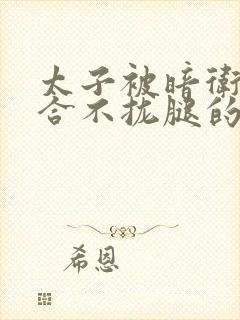 太子被暗衛
合不拢腿的
希恩